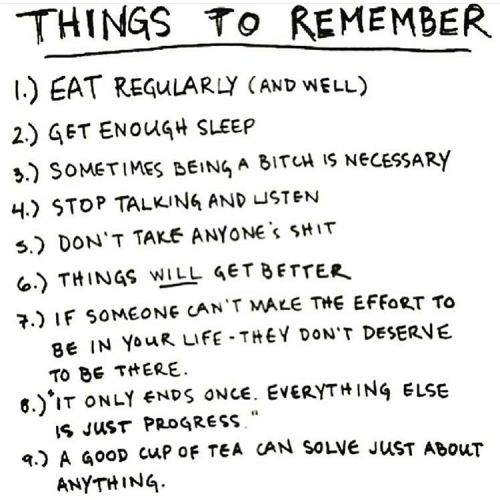 THINGS TO REMEMBER
1.) EAT REGULARLY (AND WELL)
2.) GET ENOUGH SLEEP
3.) SOMETIMES BEING A BITCH IS NECESSARY
4.) STOP TALKING AND LISTEN
5.) DON'T TAKE ANYONE'S SHIT
6.) THINGS WILL GET BETTER
7.) IF SOMEONE CAN'T MAKE THE EFFORT TO
BE IN YOUR LIFE - THEY DON'T DESERVE
TO BE THERE.
8.) "IT ONLY ENDS ONCE. EVERYTHING ELSE
IS JUST PROGRESS."
9.) A GOOD CUP OF TEA CAN SOLVE JUST ABOUT
ANYTHING.